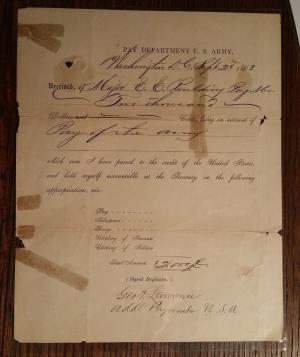 PAY DEPARTMENT U. S. ARMY,
Washington D.C. Sept. 2d 1863
Received, of Major E. E. Paulding Paymr
Two thousand
Dollars and Cents, being on account of
Pay of the army
which sum I have passed to the credit of the United States,
and hold myself accountable at the Treasury on the following
appropriations, viz:
Pay - - - - - - - -
Subsistence - - - - - - - -
Forage - - - - - - - -
Clothing of Servants
Clothing of Soldiers
Total Amount, $2000
(Signed Duplicate.)
Geo. Lawrence
Addl Paymaster U.S.A